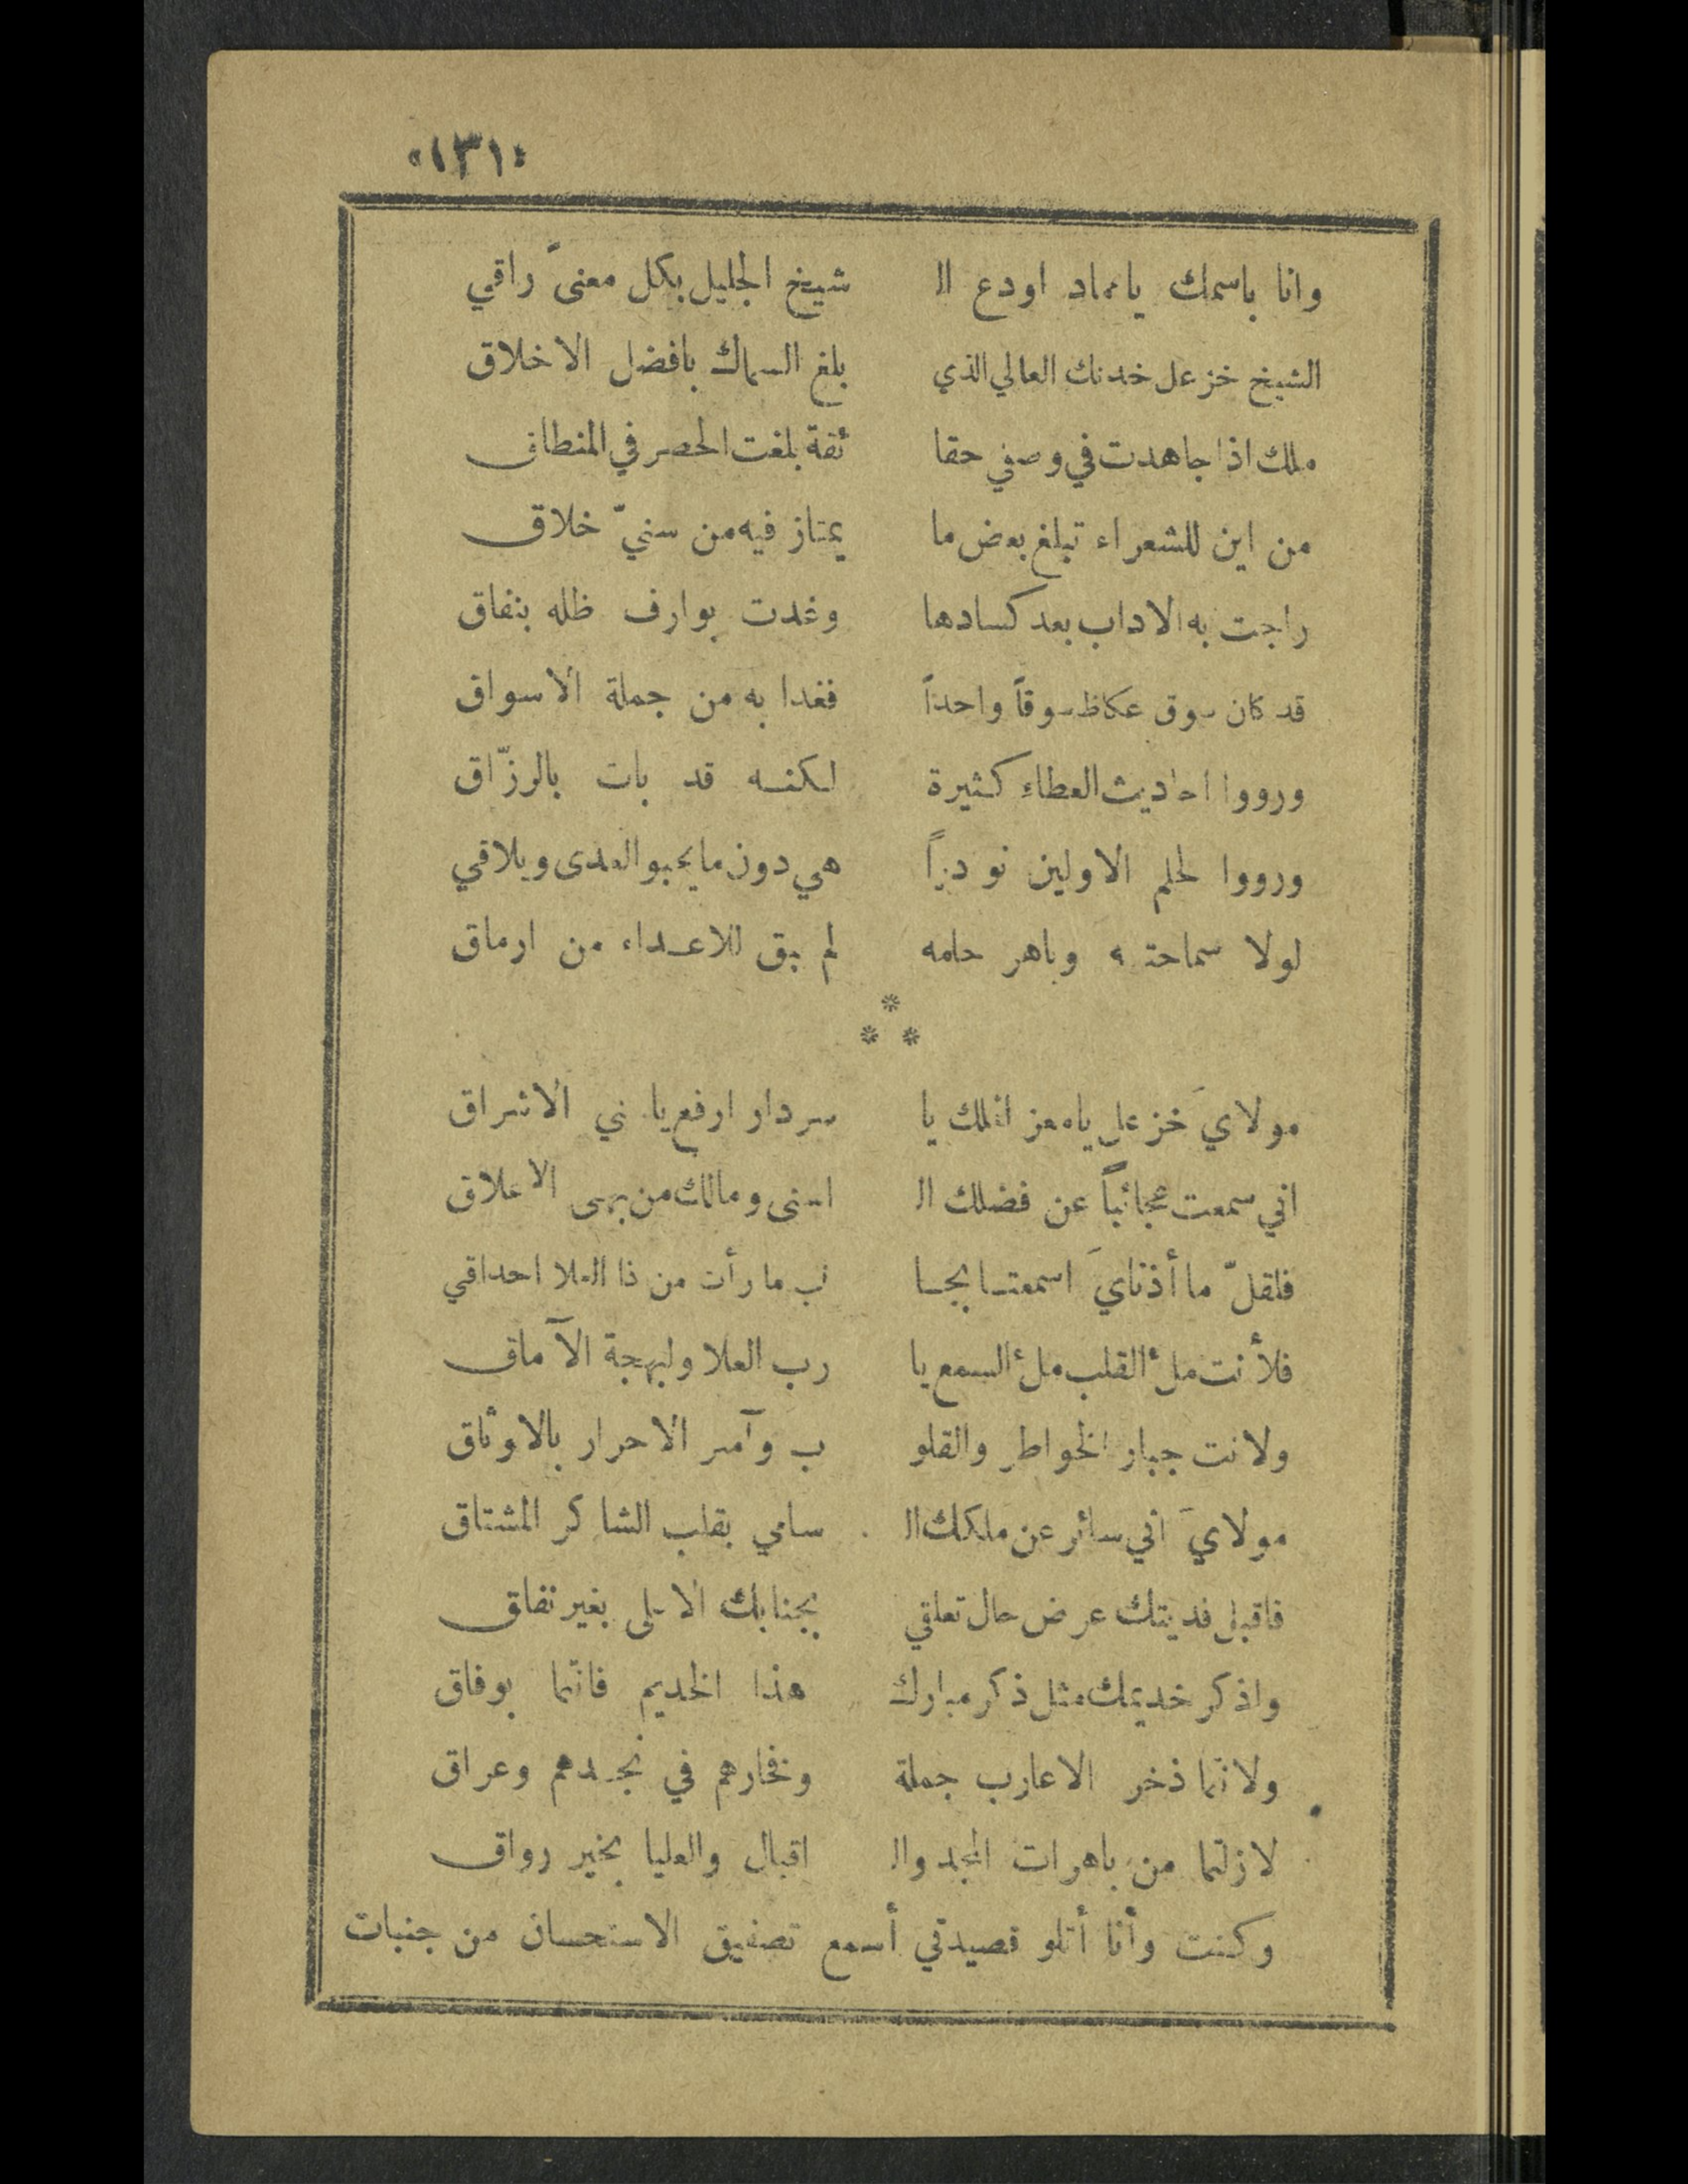 «١٣١»
وانا باسمك ياعماد اودع ال شيخ الجليل بكل معنىً راقي
الشيخ خزعل خدنك العالي الذي بلغ السماك بافضل الاخلاق
ملك اذا جاهدت في وصفي حقا ئقة بلغت الحصر في المنطاق
من اين للشعراء تبلغ بعض ما يمتاز فيه من سنيّ خلاق
راجت به الاداب بعد كسادها وغدت بوارف ظله بنفاق
قد كان سوق عكاظ سوقاً واحداً فغدا به من جملة الاسواق
ورووا احاديث العطاءِ كثيرة لكنه قد بات بالرزّاق
ورووا لحلم الاولين نودراً هي دون ما يحبو العدى ويلاقي
لولا سماحته وباهر حلمه لم يبق للاعداء من ارماق
*
* *
مولايَ خزعل يامعز الملك يا سردار ارفع يا سني الاشراق
اني سمعت عجائباً عن فضلك ال اسنى ومالك من بهى الاعلاق
فلقلّ ما أذنايَ اسمعتا بجا نب ما رأت من ذا العلا احداقي
فلأنت ملُ القلب ملُ السمع يا رب العلا ولبهجة الآماق
ولانت جبار الخواطرِ والقلو ب وآسر الاحرار بالاوثاق
مولايَ اني سائر عن ملكك ال سامي بقلب الشاكر المشتاق
فاقبل فديتك عرض حال تعلقي بجنابك الاعلى بغير نفاق
واذكر خديمك مثل ذكر مبارك هذا الخديم فانتما بوفاق
ولانتما ذخر الاعارب جملة وفخارهم في نجدهم وعراق
لازلتما من باهرات المجد وال اقبال والعليا بخير رواق
وكنت وأنا أتلو قصيدتي أسمع تصفيق الاستحسان من جنبات